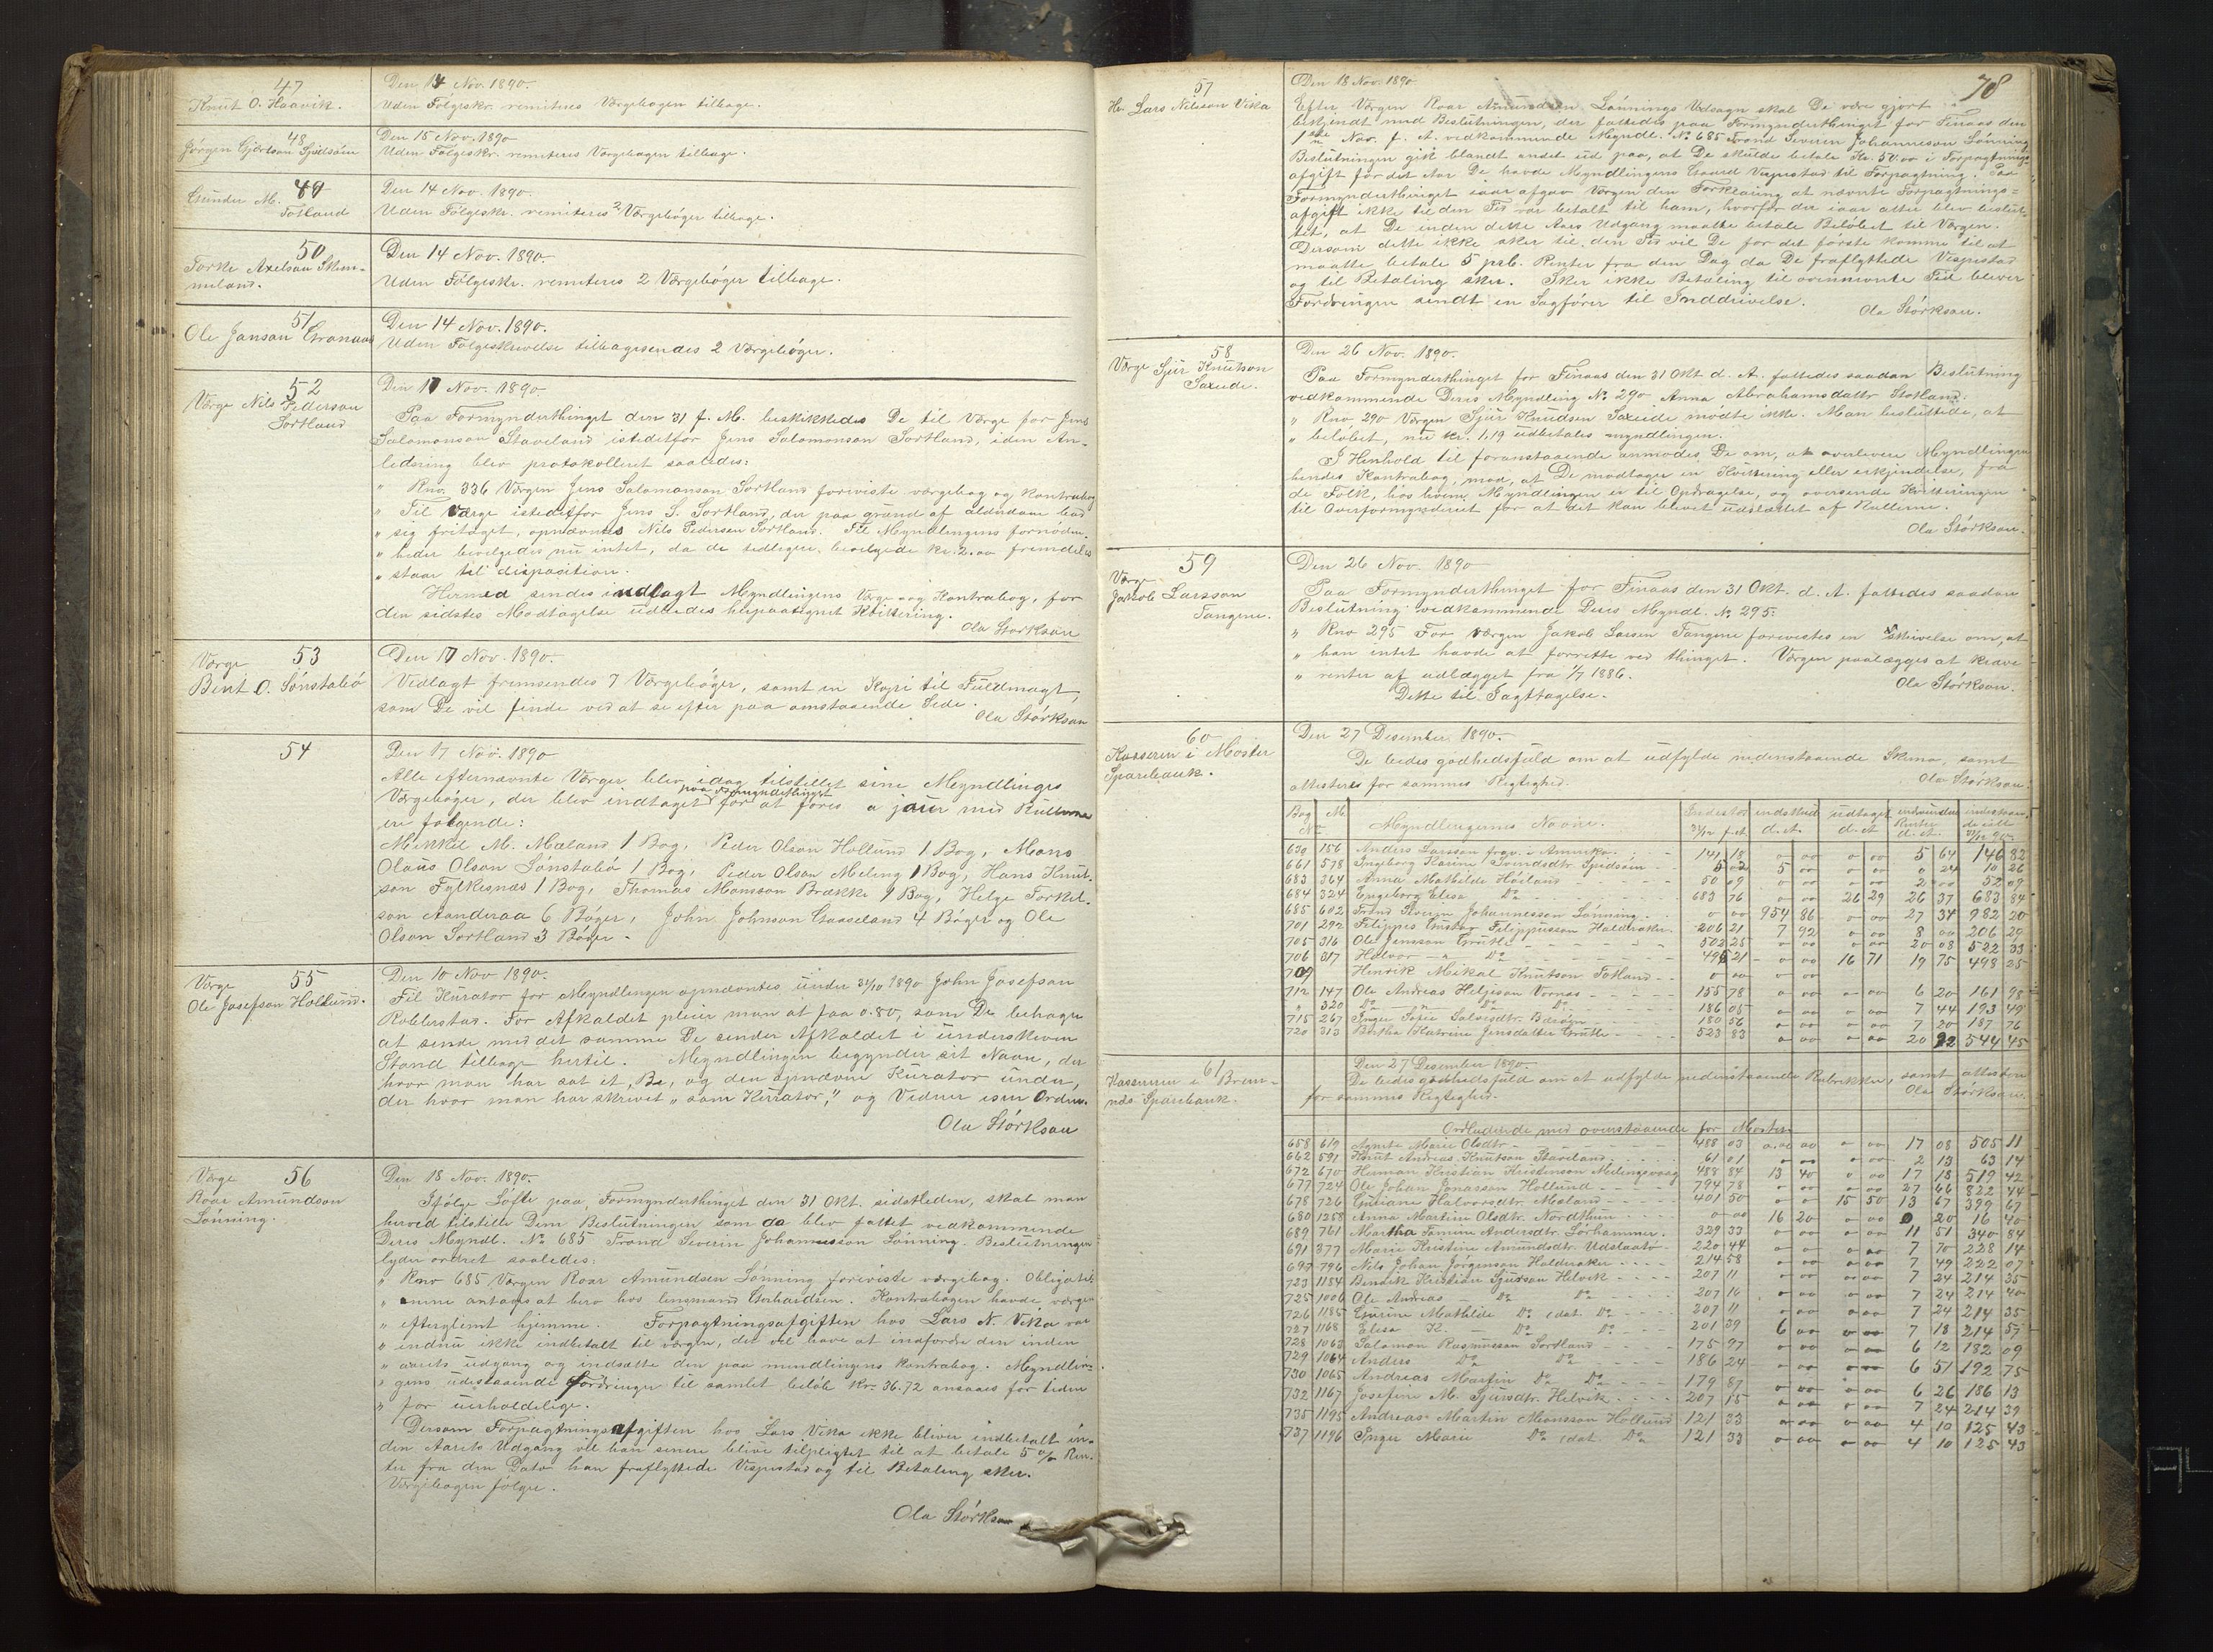 47
Knut O. Haavik.
Den 14 Nov. 1890.
Uden Følgeskr. remiteres Værgebogen tilbage.
48
Jørgen Gjertsøn Spidsøen
Den 15 Nov. 1890
Uden Følgeskr. remiteres Værgebogen tilbage.
49
Gunder M. Totland
Den 14 Nov. 1890.
Uden Følgeskr. remiteres 2 Værgebøger tilbage.
50
Torke Axelsøn Skim-
meland.
Den 14 Nov. 1890.
Uden Følgeskr. remiteres 2 Værgebøger tilbage.
51
Ole Janson Granaas
Den 14 Nov. 1890.
Uden Følgeskrivelse tilbagesendes 2 Værgebøger.
52
Værge Nils Pederson
Sortland
Den 17 Nov. 1890.
Paa Formynderthinget den 31 f. M. beskikkedes De til Værge for Jens
Salomonson Staveland istedetfor Jens Salomonson Sortland, i den An-
ledning blev protokolleret saaledes:
" Rno 336 Værgen Jens Salomonson Sortland foreviste værgebog og kontrabog
" Til Værge istedetfor Jens S. Sortland, der paa grund af alderdom bad
" sig fritaget, opnævnes Nils Pedersen Sortland. Til Myndlingens fornøden-
" heder bevilgedes nu intet, da de tidligere bevilgede kr. 2.00 fremdeles
" staar til disposition.
Hermed sendes indlagt Myndlingens Værge og Kontrabog, for
den sidstes Modtagelse udbedes hospaategnet Kvittering.
Ola Størkson
53
Værge
Bent O. Sønstabø
Den 17 Nov. 1890.
Vedlagt fremsendes 7 Værgebøger, samt en Kopi til Fuldmagt,
som De vil finde ved at se efter paa omstaaende Side.
Ola Størkson
54
Den 17 Nov. 1890
Alle efternævnte Værger blev idag tilstillet sine Myndlinges
paa Formynderthinget
Værgebøger, der blev indtaget for at føres a jour med Rullerne
ere følgende:
Mikkel M. Mæland 1 Bog, Peder Olson Hollund 1 Bog, Mons
Olaus Olson Sønstabø 1 Bog, Peder Olson Meling 1 Bog, Hans Knut-
son Fylkesnæs 1 Bog, Thomas Monsson Brække 1 Bog, Helge Torkel-
son Aanderaa 6 Bøger, John Johnson Gaaseland 4 Bøger og Ole
Olson Sortland 3 Bøger.
55
Værge
Ole Josefson Hollund.
Den 10 Nov 1890.
Til Kurator for Myndlingen opnævntes under 31/10 1890 John Josefson
Robberstad. For Afkaldet pleier man at faa 0.80, som De behager
at sende med det samme De sender Afkaldet i underskreven
Stand tilbage hertil. Myndlingen begynder sit Navn, der
hvor man har sat et, Be, og den opnævnte Kurator under,
der hvor man har skrevet "som Kurator," og Vidner i sin Orden.
Ola Størkson
56
Værge
Roar Amundson
Lønning.
Den 18 Nov. 1890.
Ifølge Løfte paa Formynderthinget den 31 Okt. sidstleden, skal man
herved tilstille Dem Beslutningen som da blev fattet vedkommende
Deres Myndl. No 685 Trond Severin Johannesson Lønning. Beslutningen
lyder ordret saaledes:
" Rno 685 Værgen Roar Amundsen Lønning foreviste værgebog. Obligatio-
" nerne antages at bero hos lensmand Gerhardsen. Kontrabogen havde værgen
" efterglemt hjemme. Forpagtningsafgiften hos Lars N. Vika var
" endnu ikke indbetalt til værgen, der vil have at indfordre den inden
" aarets udgang og indsætte den paa mindlingens kontrabog. Myndlin-
" gens udestaaende fordringer til samlet beløb kr. 36.72 ansaaes for tiden
" for uerholdelige.
Dersom Forpagtningsafgiften hos Lars Vika ikke bliver indbetalt in-
den Aarets Udgang vil han senere blive tilpligtet til at betale 5 o/o Ren-
ter fra den Dato han fraflyttede Vespestad og til Betaling sker.
Værgebogen følger.
Ola Størkson
78
57
Hr. Lars Nilsson Vika
Den 18 Nov. 1890
Efter Værgen Roar Amundsen Lønnings Udsagn skal De være gjort
bekjendt med Beslutningen, der fattedes paa Formynderthinget for Finaas den
1ste Nov. f. A. vedkommende Myndl. No 685 Trond Severin Johanneson Lønning
Beslutningen gik blandt andet ud paa, at De skulde betale Kr. 50.00 i Forpagtnings-
afgift for det Aar De havde Myndlingens Gaard Vespestad til Forpagtning. Paa
Formynderthinget iaar afgav Værgen den Forklaring at nævnte Forpagtnings-
afgift ikke til den Tid var betalt til ham, hvorfor der iaar atter blev beslut-
tet, at De inden dette Aars Udgang maatte betale Beløbet til Værgen.
Dersom dette ikke sker til den Tid vil De for det første komme til at
maatte betale 5 prC. Renter fra den Dag da De fraflyttede Vespestad
og til Betaling sker. Sker ikke Betaling til ovennævnte Tid bliver
Fordringen sendt en Sagfører til Inddrivelse.
Ola Størkson.
58
Værge Sjur Knutson
Saxeide.
Den 26 Nov. 1890.
Paa Formynderthinget for Finaas den 31 Okt d. A. fattedes saadan Beslutning
vedkommende Deres Myndling No 290 Anna Abrahamsdattr Stokland:
" Rno 290 Værgen Sjur Knudsen Saxeide mødte ikke. Man besluttede, at
" beløbet, nu kr. 1.19 udbetales myndlingen.
I Henhold til foranstaaende anmodes De om, at overlevere Myndlingen
hendes Kontrabog, mod, at De modtager en Kvittering eller erkjendelse, fra
de Folk, hos hvem Myndlingen er til Opdragelse, og oversende Kvitteringen
til Overformynderiet for at det kan blevet udslettet af Rullerne.
Ola Størkson.
59
Værge
Jakob Larsson
Tangene.
Den 26 Nov. 1890
Paa Formynderthinget for Finaas den 31 Okt. d. A. fattedes saadan
Beslutning vedkommende Deres Myndl. No 295:
" Rno 295 For værgen Jakob Larsen Tangene forevistes en skrivelse om, at
" han intet havde at forrette ved thinget. Værgen paalægges at kræve
" renter af udlægget fra 1/7 1886.
Dette til Iagttagelse.
Ola Størkson.
60
Kasseren i Moster
Sparebank.
Den 27 Desember 1890.
De bedes godhedsfuld om at udfylde nedenstaaende Skema, samt
attesteres for sammes Rigtighed.
Ola Størkson.
Bog No M. Myndlingernes Navne. indskudt udtaget
630 156 Anders Larsson frav. i Amerika. 141 18 0 00 0 00 5 64 146 82
661 578 Ingeborg Karine Svendsdtr. Spidsøen 5 02 5 00 0 00 0 24 10 26
683 364 Anna Mathilde Høiland 50 09 0 00 0 00 2 00 52 09
684 324 Engeborg Elisa Do 683 76 0 00 26 29 26 37 683 84
685 602 Trond Severin Johannesson Lønning 0 00 954 86 0 00 27 34 982 20
701 292 Filippes Gustav Filippusson Halderaker 206 21 7 92 0 00 8 00 206 29
705 316 Ole Jensson Grutle 502 25 0 00 0 00 20 08 522 33
706 317 Halvor Do 495 21 0 00 16 71 19 75 498 25
709 Henrik Mikal Knutson Totland 0 00 0 00
712 147 Ole Andreas Helgeson Vornæs 155 78 0 00 0 00 6 20 161 98
" 320 Do Do 186 05 0 00 0 00 7 44 193 49
715 267 Inger Sofie Salvesdtr. 180 56 0 00 0 00 7 20 187 76
720 313 Bertha Katrine Jensdatter Grutle 523 83 0 00 0 00 20 92 544 45
61
Kasseren i Brem-
næs Sparebank.
Den 27 Desember 1890.
De bedes godhedsfuld om at udfylde nedenstaaende Rubrikker, samt attestere
for sammes Rigtighed. Ola Størkson.
Ordludende med ovenstaaende for Moster
658 619 Agnete Marie Olsdtr. 488 03 0 00 0 00 17 08 505 11
662 591 Knut Andreas Knutson Staveland 61 01 0 00 0 00 2 13 63 14
672 670 Herman Kristian Kristenson Melingsvaag 488 84 13 40 0 00 17 18 519 42
677 724 Ole Johan Jonasson Hollund 794 78 0 00 0 00 27 66 822 44
678 726 Guriane Halvorsdtr. Mæland 401 50 0 00 15 50 13 67 399 67
680 1258 Anna Martine Olsdtr. Nordthun 0 00 16 20 0 00 0 20 16 40
689 761 Martha Tomine Andersdtr. Sørhammer. 329 33 0 00 0 00 11 51 340 84
691 377 Marie Kristine Amundsdtr. Udslaatø 220 44 0 00 0 00 7 70 228 14
699 796 Nils Johan Jørgenson Halderaker 214 58 0 00 0 00 7 49 222 07
723 1184 Bendik Kristian Sjurson Helvik 207 11 0 00 0 00 7 24 214 35
725 1006 Ole Andreas Do Do 207 16 0 00 0 00 7 24 214 40
726 1185 Gurine Mathilde Do dat. Do 207 11 0 00 0 00 7 24 214 35
727 1168 Elisa K. Do Do 201 39 6 00 0 00 7 18 214 57
728 1063 Salomon Rasmusson Sortland 175 97 0 00 0 00 6 12 182 09
729 1064 Anders Do Do 186 24 0 00 0 00 6 51 192 75
730 1065 Andreas Martin Do Do 179 87 0 00 0 00 6 26 186 13
732 1167 Josefine M. Sjursdtr. Helvik 207 15 0 00 0 00 7 24 214 39
735 1195 Andreas Martin Monsson Hollund 121 33 0 00 0 00 4 10 125 43
737 1196 Inger Marie Do dat. Do 121 33 0 00 0 00 4 10 125 43